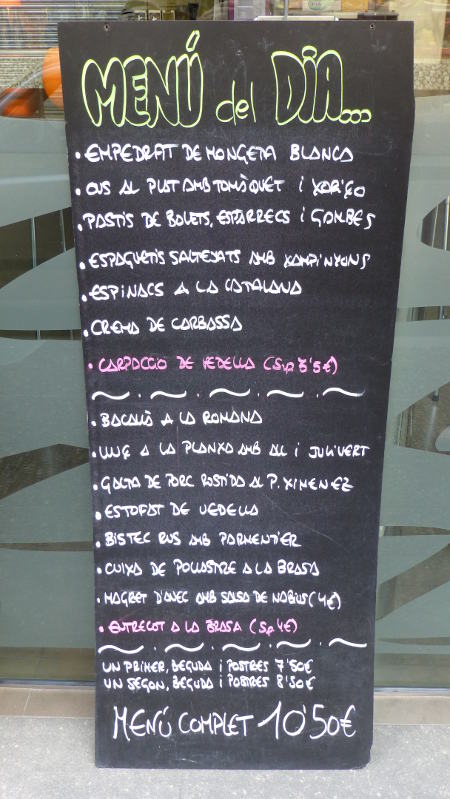 MENÚ del DIA...
• EMPEDRAT DE MONGETA BLANCA
• OUS AL PLAT AMB TOMÀQUET I XORIÇO
• PASTIS DE BOLETS, ESPÀRRECS I GAMBES
• ESPAGUETIS SALTEJATS AMB XAMPINYONS
• ESPINACS A LA CATALANA
• CREMA DE CARBASSA
• CARPACCIO DE VEDELLA (Sup 3'5€)
• BACALLÀ A LA ROMANA
• LLUÇ A LA PLANXA AMB ALL I JULIVERT
• GALTA DE PORC ROSTIDA AL P. XIMENEZ
• ESTOFAT DE VEDELLA
• BISTEC RUS AMB PARMENTIER
• CUIXA DE POLLASTRE A LA BRASA
• MAGRET D'ANEC AMB SALSA DE NABIUS (4€)
• ENTRECOT A LA BRASA (Sp 4€)
UN PRIMER, BEGUDA I POSTRES 7'50€
UN SEGON, BEGUDA I POSTRES 8'50€
MENÚ COMPLET 10'50€